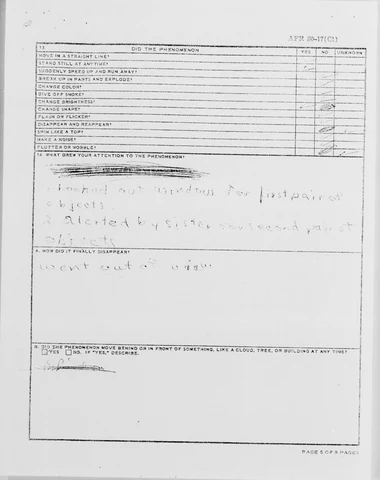 13. DID THE PHENOMENON YES NO UNKNOWN
MOVE IN A STRAIGHT LINE?
STAND STILL AT ANY TIME?
SUDDENLY SPEED UP AND RUN AWAY?
BREAK UP IN PARTS AND EXPLODE?
CHANGE COLOR?
GIVE OFF SMOKE?
CHANGE BRIGHTNESS?
CHANGE SHAPE?
FLASH OR FLICKER?
DISAPPEAR AND REAPPEAR?
SPIN LIKE A TOP?
MAKE A NOISE?
FLUTTER OR WOBBLE?
14. WHAT DREW YOUR ATTENTION TO THE PHENOMENON?
looked out windows for first pair of
objects.
2. Alerted by sister second pair of
objects
A. HOW DID IT FINALLY DISAPPEAR?
went out of view
B. DID THE PHENOMENON MOVE BEHIND OR IN FRONT OF SOMETHING, LIKE A CLOUD, TREE, OR BUILDING AT ANY TIME?
YES NO. IF "YES," DESCRIBE.